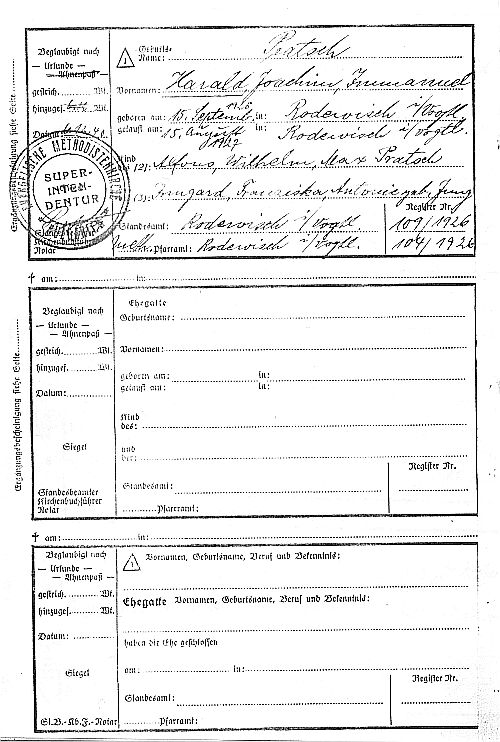 Beglaubigt nach
— Urkunde —
— Ahnenpaß —
gestrich. Wt.
hinzugef. Wt.
Datum
EVANGELISCHE METHODISTENKIRCHE
SUPER-
INTEN-
DENTUR
Standesbeamter
Kirchenbuchführer
Notar
Ergänzungsbescheinigung siehe Seite
1 Geburts-
Name: Pratsch
Vornamen: Harald, Joachim, Immanuel
geboren am: 15. September 1926 in: Rodewisch i/Vogtl.
getauft am: 15. August 1927 in: Rodewisch i/Vogtl.
Kind
des (2): Alfons, Wilhelm, Max Pratsch
(3): Irmgard, Franziska, Antonie geb. Jung
Register Nr.
Standesamt: Rodewisch i/Vogtl. 109/1926
Pfarramt: Rodewisch i/Vogtl. 104/1926
† am: in:
Beglaubigt nach
— Urkunde —
— Ahnenpaß —
gestrich. Wt.
hinzugef. Wt.
Datum:
Siegel
Standesbeamter
Kirchenbuchführer
Notar
Ergänzungsbescheinigung siehe Seite
Ehegatte
Geburtsname:
Vornamen:
geboren am: in:
getauft am: in:
Kind
des:
und
der:
Register Nr.
Standesamt:
Pfarramt:
† am: in:
Beglaubigt nach
— Urkunde —
— Ahnenpaß —
gestrich. Wt.
hinzugef. Wt.
Datum:
Siegel
St.B.-Kb.F.-Notar
1 Vornamen, Geburtsname, Beruf und Bekenntnis:
Ehegatte Vornamen, Geburtsname, Beruf und Bekenntnis:
haben die Ehe geschlossen
am: in:
Register Nr.
Standesamt:
Pfarramt: